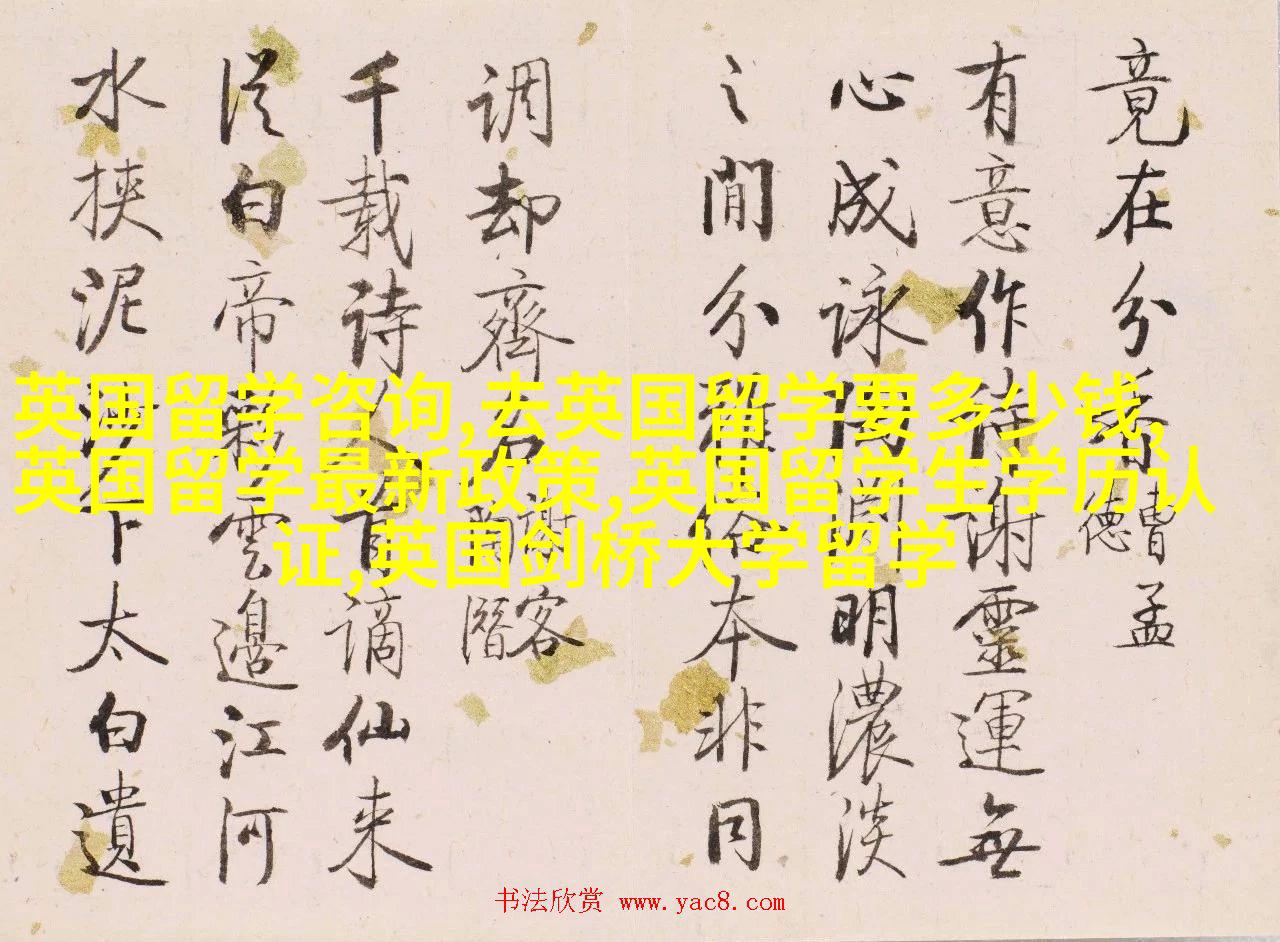 竟在分香
曹孟
德
有意作诗谢靈運無
心成咏陶渊明濃淡
之間分雅俗本非同
调却齊名
謝客
陶潛
千载诗人首谪仙来
従白帝彩雲邊江河
水挟泥沙下太白遺
英国留学咨询,去英国留学要多少钱,
英国留学最新政策,英国留学生学历认
证,英国剑桥大学留学
书法欣赏 www.yac8.com